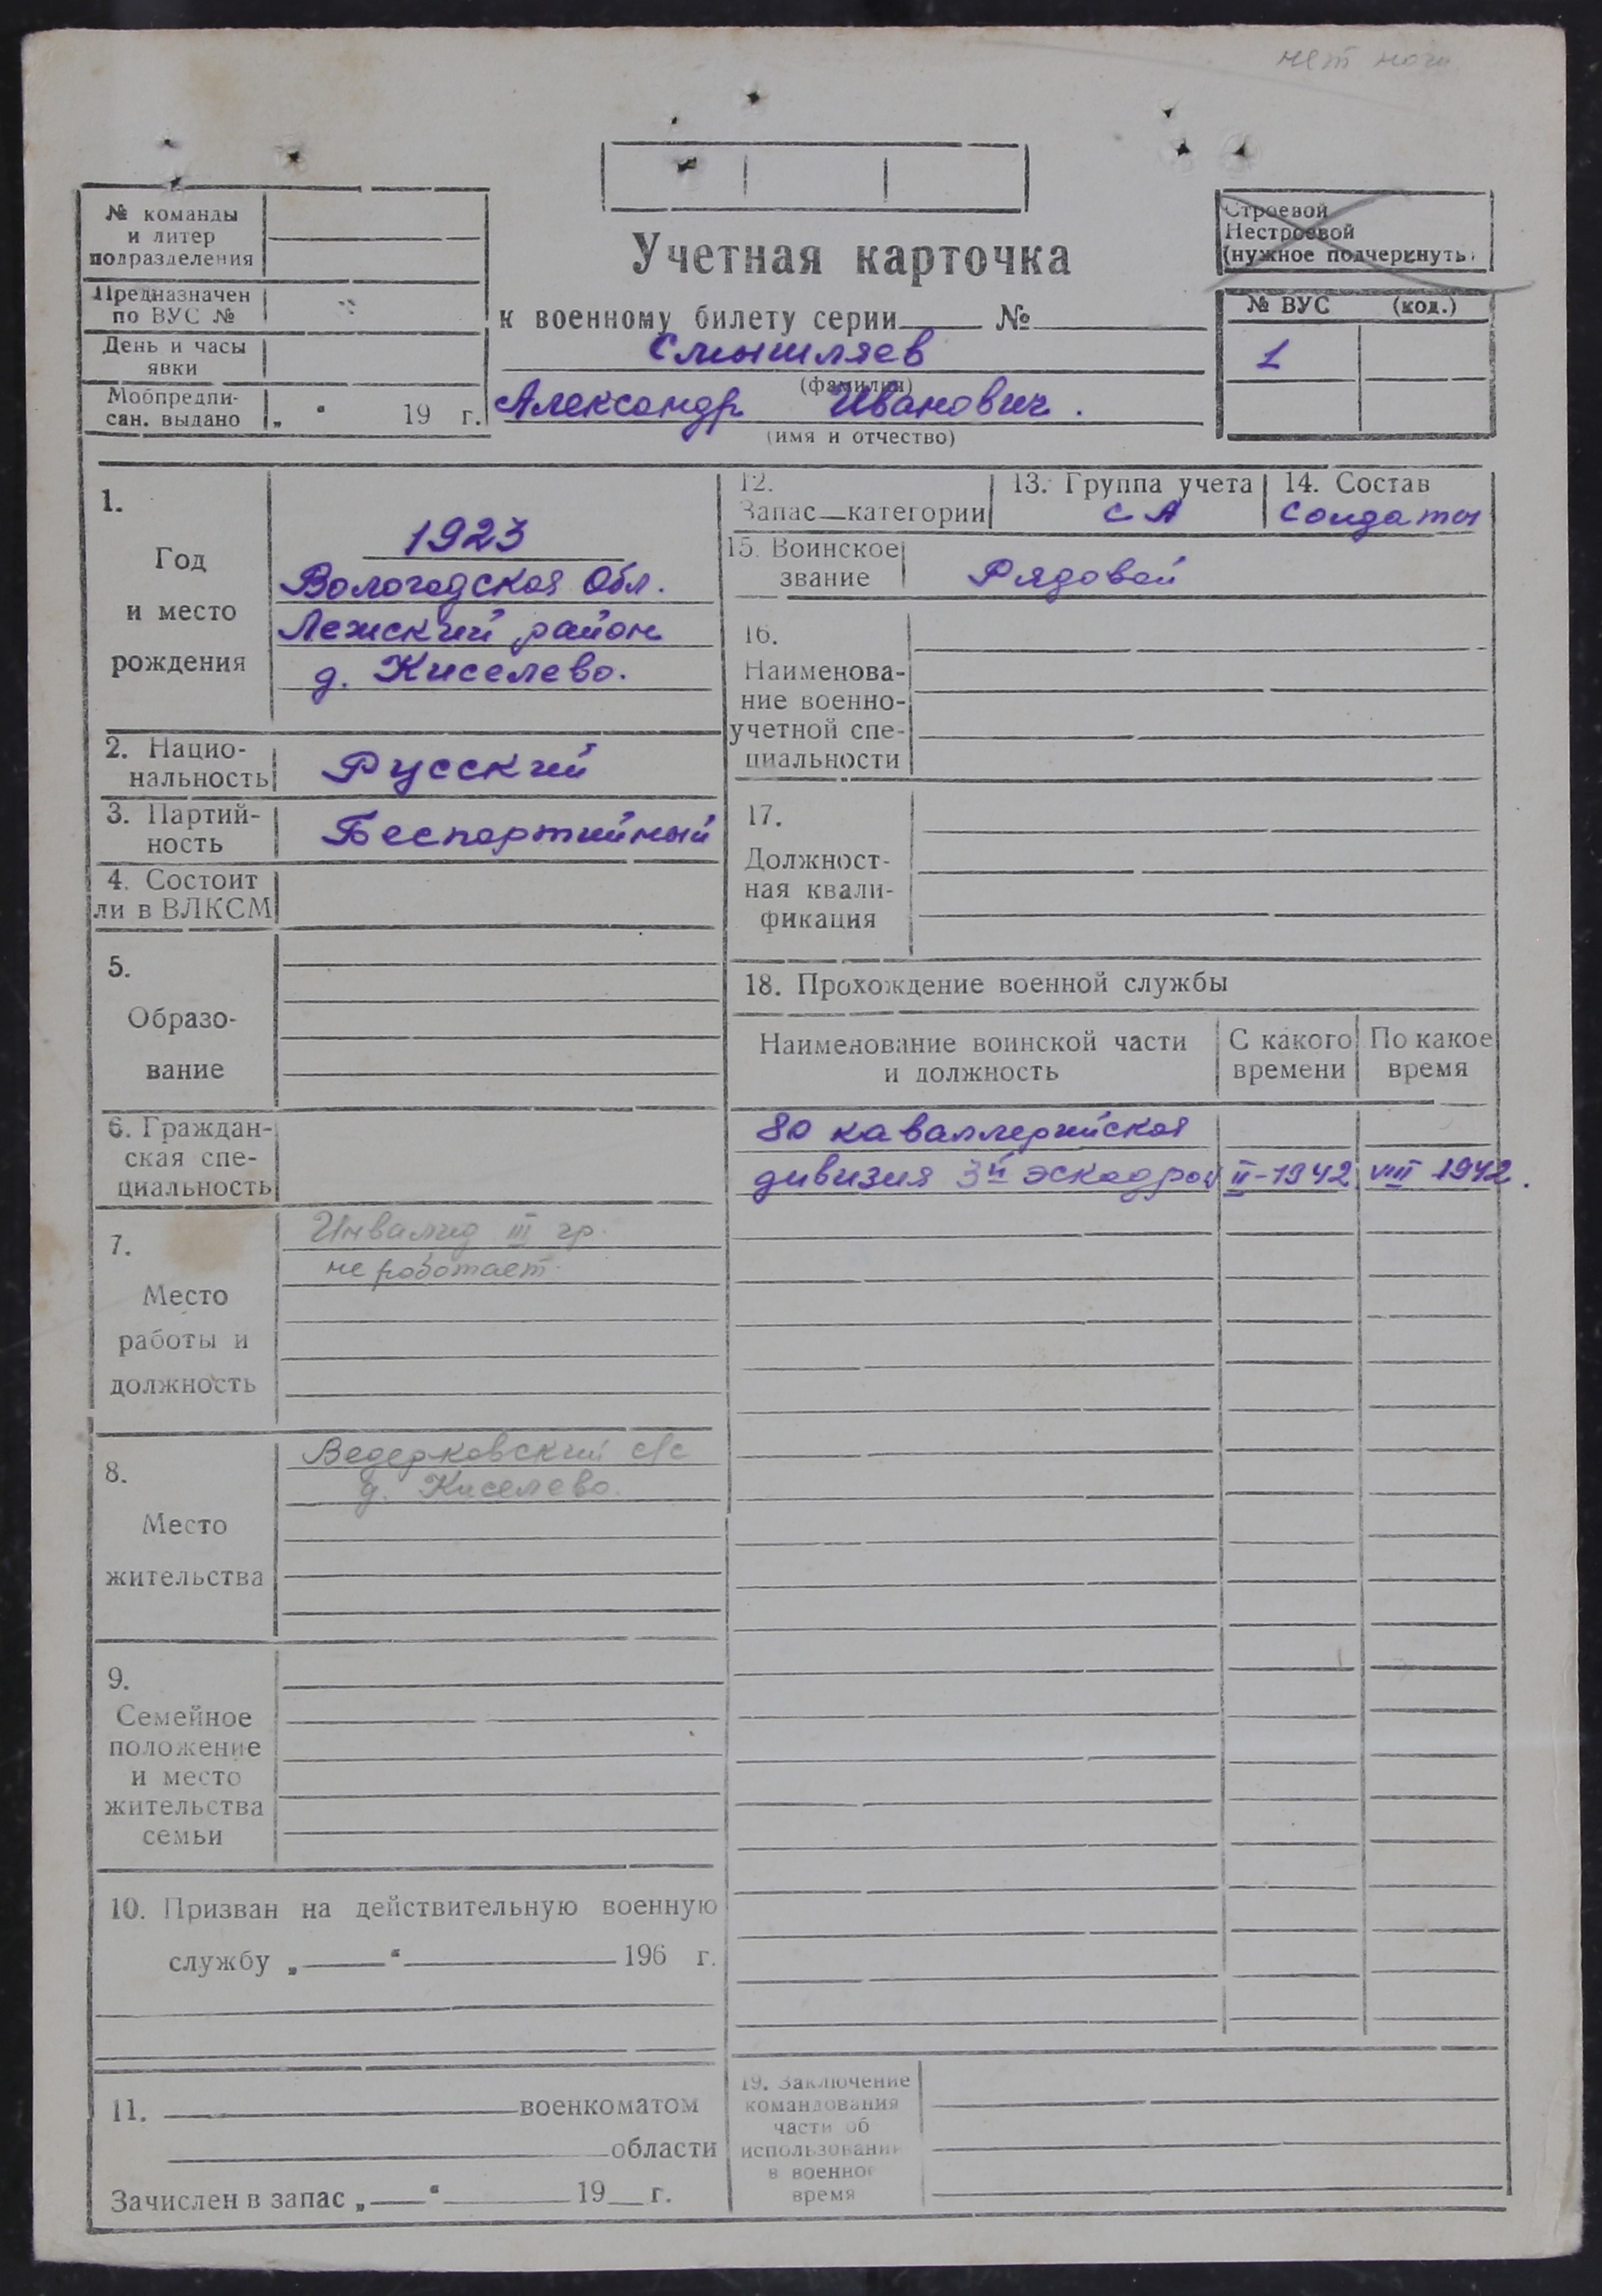 нет ноги
№ команды
и литер
подразделения
Предназначен
по ВУС №
День и часы
явки
Мобпредпи-
сан. выдано „ “ 19 г.
Учетная карточка
к военному билету серии № 
Смышляев
(фамилия)
Александр Иванович.
(имя и отчество)
Строевой
Нестроевой
(нужное подчеркнуть)
№ ВУС (код.)
1
1.
Год
и место
рождения
1923
Вологодская Обл.
Лежский район
д. Киселево.
2. Нацио-
нальность
Русский
3. Партий-
ность
Беспартийный
4. Состоит
ли в ВЛКСМ
5.
Образо-
вание
6. Граждан-
ская спе-
циальность
7.
Место
работы и
должность
Инвалид III гр.
не работает.
8.
Место
жительства
Ведерковский с/с
д. Киселево.
9.
Семейное
положение
и место
жительства
семьи
10. Призван на действительную военную
службу „ “ 196 г.
11. военкоматом
области
Зачислен в запас „ “ 19 г.
12.
Запас—категории
13. Группа учета
СА
14. Состав
Солдаты
15. Воинское
звание
Рядовой
16.
Наименова-
ние военно-
учетной спе-
циальности
17.
Должност-
ная квали-
фикация
18. Прохождение военной службы
Наименование воинской части
и должность
С какого
времени
По какое
время
80 каваллерийская
дивизия 3й эскадрон II-1942 VIII 1942.
19. Заключение
командования
части об
использовании
в военное
время